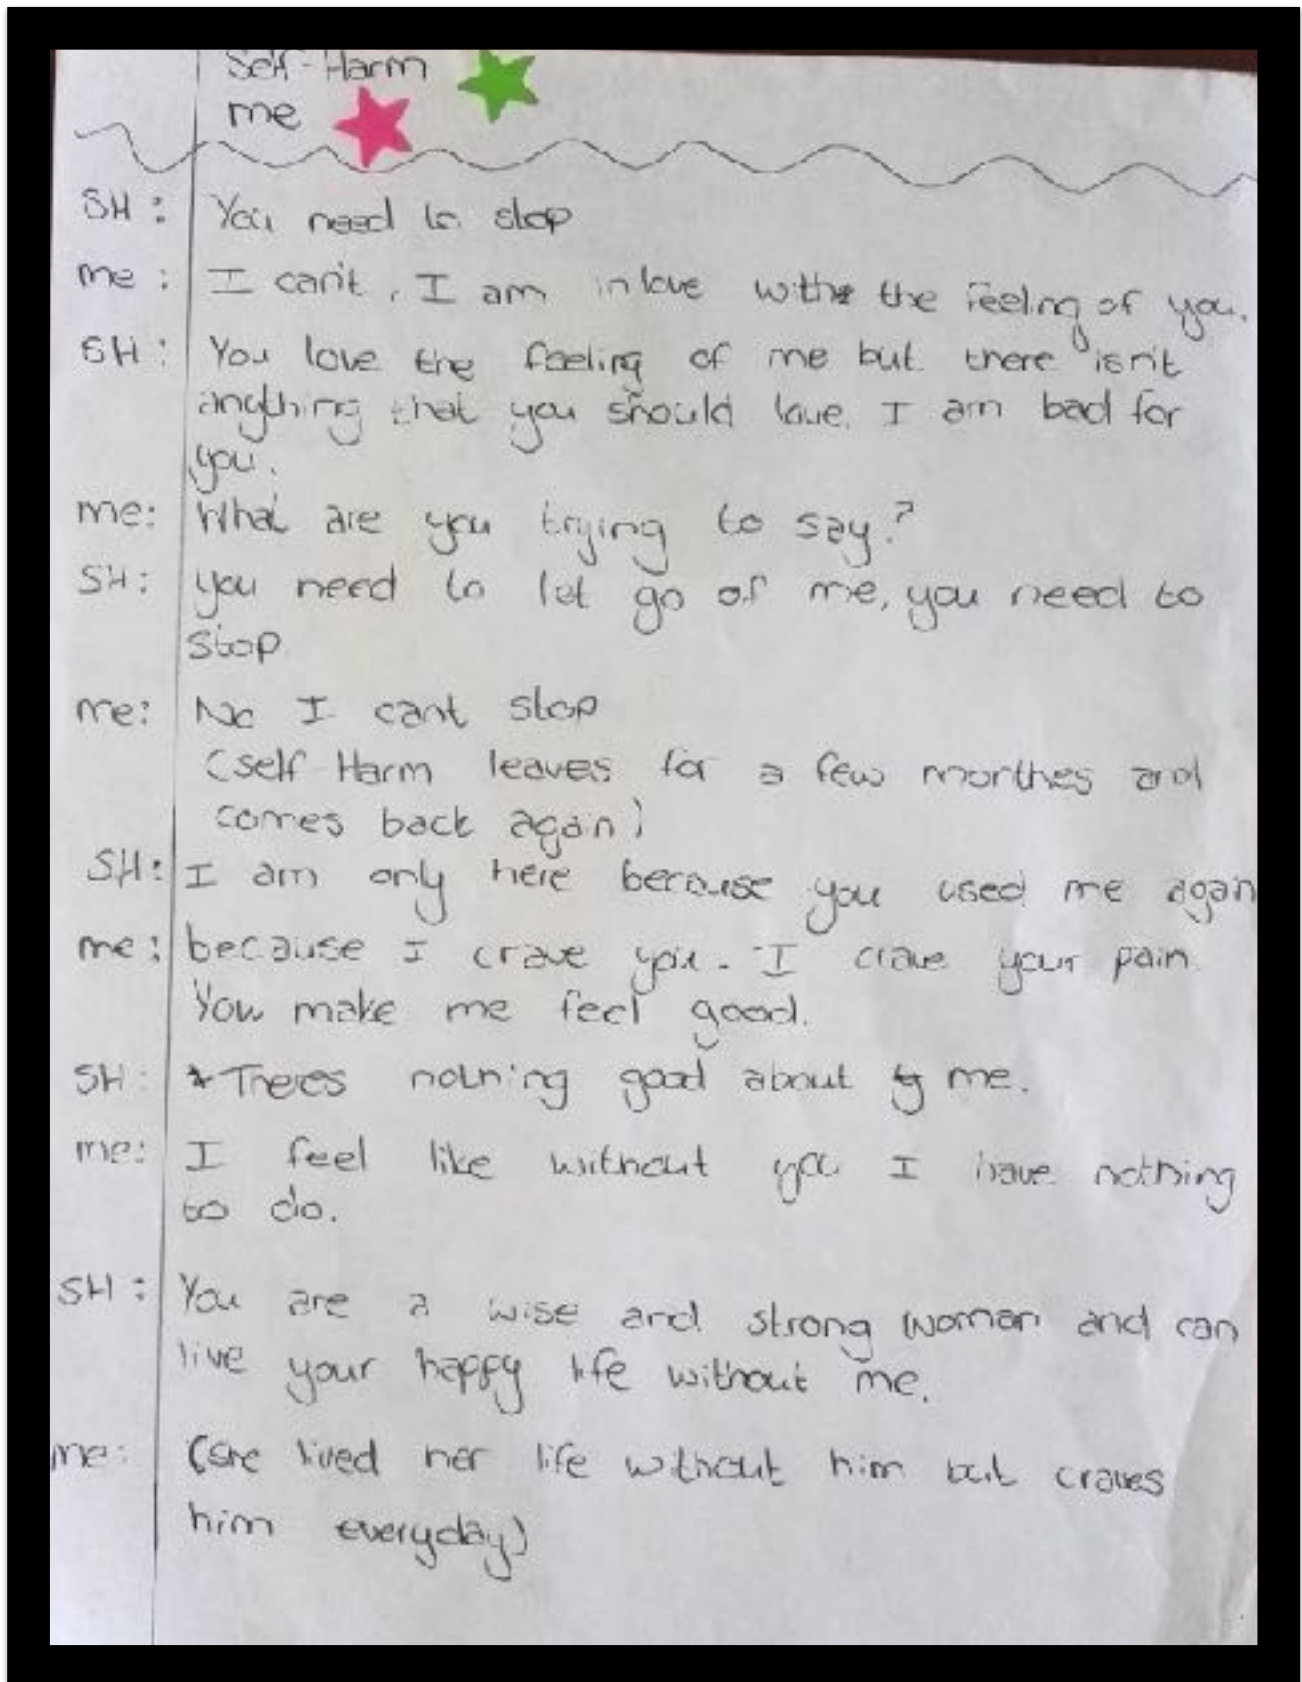 Self-Harm
me
SH: You need to stop
me: I can't, I am in love with the feeling of you.
SH: You love the feeling of me but there isn't
anything that you should love. I am bad for
you.
me: What are you trying to say?
SH: you need to let go of me, you need to
stop
me: No I cant stop
(self Harm leaves for a few monthes and
comes back again)
SH: I am only here because you used me again
me: because I crave you. I crave your pain
You make me feel good.
SH: Theres nothing good about me.
me: I feel like without you I have nothing
to do.
SH: You are a wise and strong woman and can
live your happy life without me.
me: (she lived her life without him but craves
him everyday)